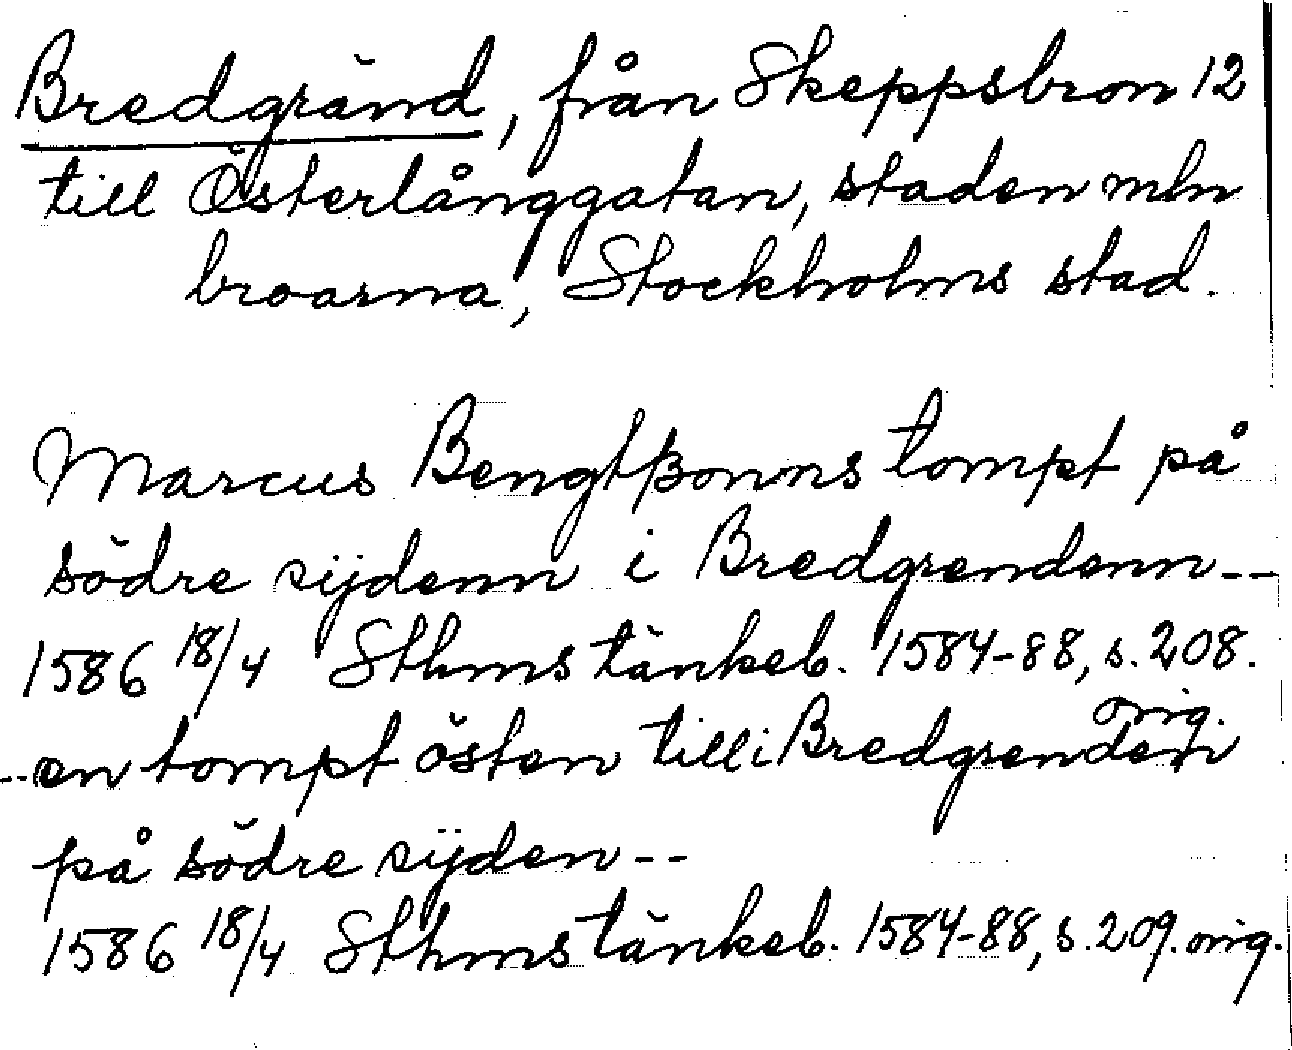 Bredgränd, från Skeppsbron 12
till Österlånggatan, staden mln
broarna, Stockholms stad.
Marcus Bengtßonns tompt på
södre sijdenn i Bredgrendenn--
1586 18/4 Sthms tänkeb. 1584-88, s. 208.
orig.
--en tompt östen till i Bredgrenden
på södre sijden--
1586 18/4 Sthms tänkeb. 1584-88, s. 209. orig.